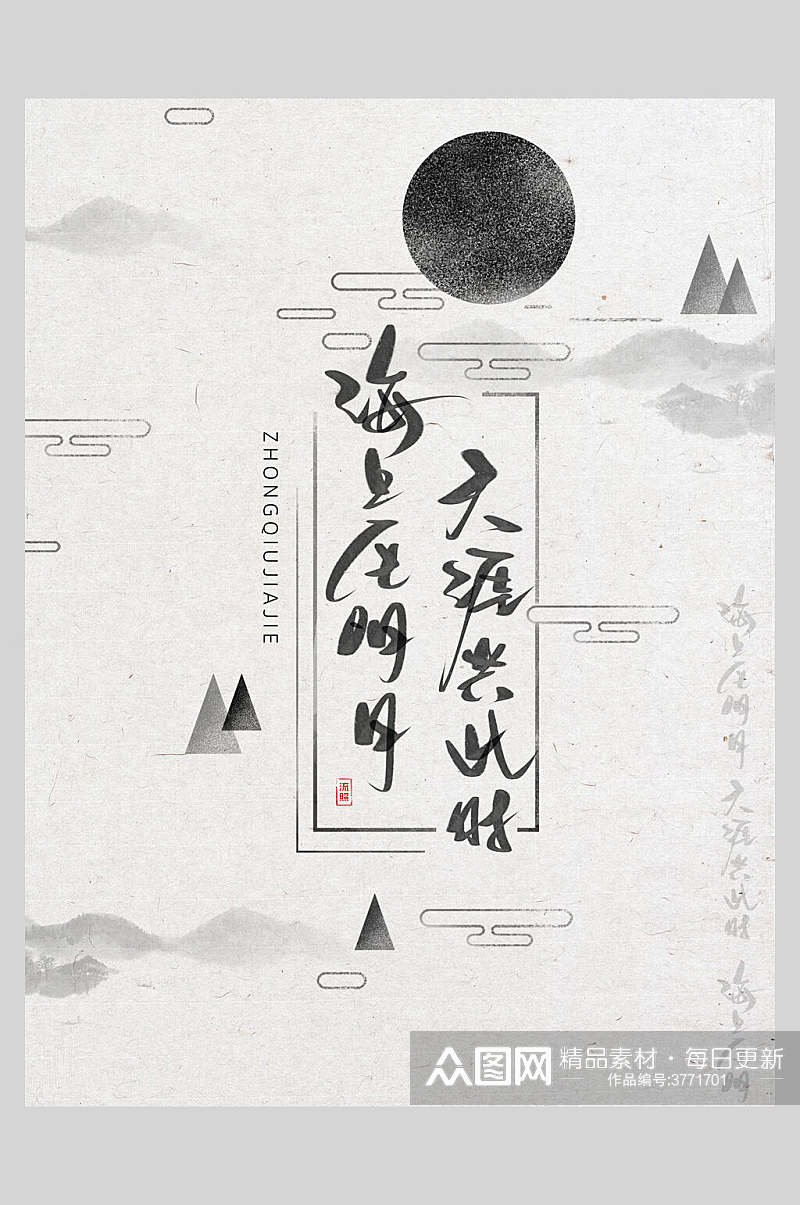 海上生明月
天涯共此时
ZHONGQIUJIAJIE
流照
海上生明月天涯共此时
海上生明
众图网
精品素材·每日更新
作品编号:3771701